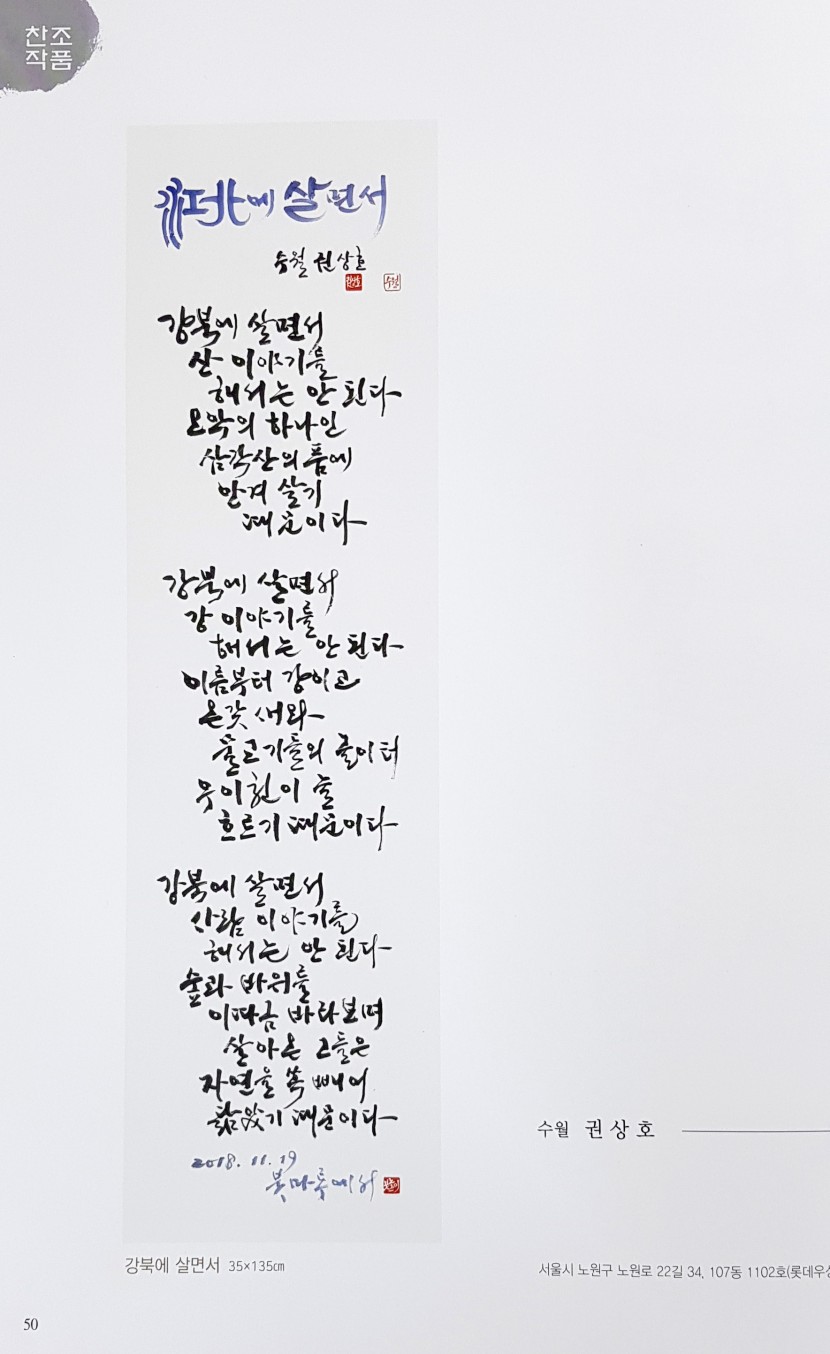 찬조
작품
江北에 살면서
수월 권상호
수월
강북에 살면서
산 이야기를
해서는 안 된다
오악의 하나인
삼각산의 품에
안겨 살기
때문이다
강북에 살면서
강 이야기를
해서는 안 된다
이름부터 강이고
온갖 새와
물고기들의 놀이터
우이천이 늘
흐르기 때문이다
강북에 살면서
사람 이야기를
해서는 안 된다
숲과 바위를
이따금 바라보며
살아온 그들은
자연을 쏙 빼어
닮았기 때문이다
2018. 11. 19
붓마루에서
수월 권상호
강북에 살면서 35×135㎝
서울시 노원구 노원로 22길 34, 107동 1102호(롯데우성
50